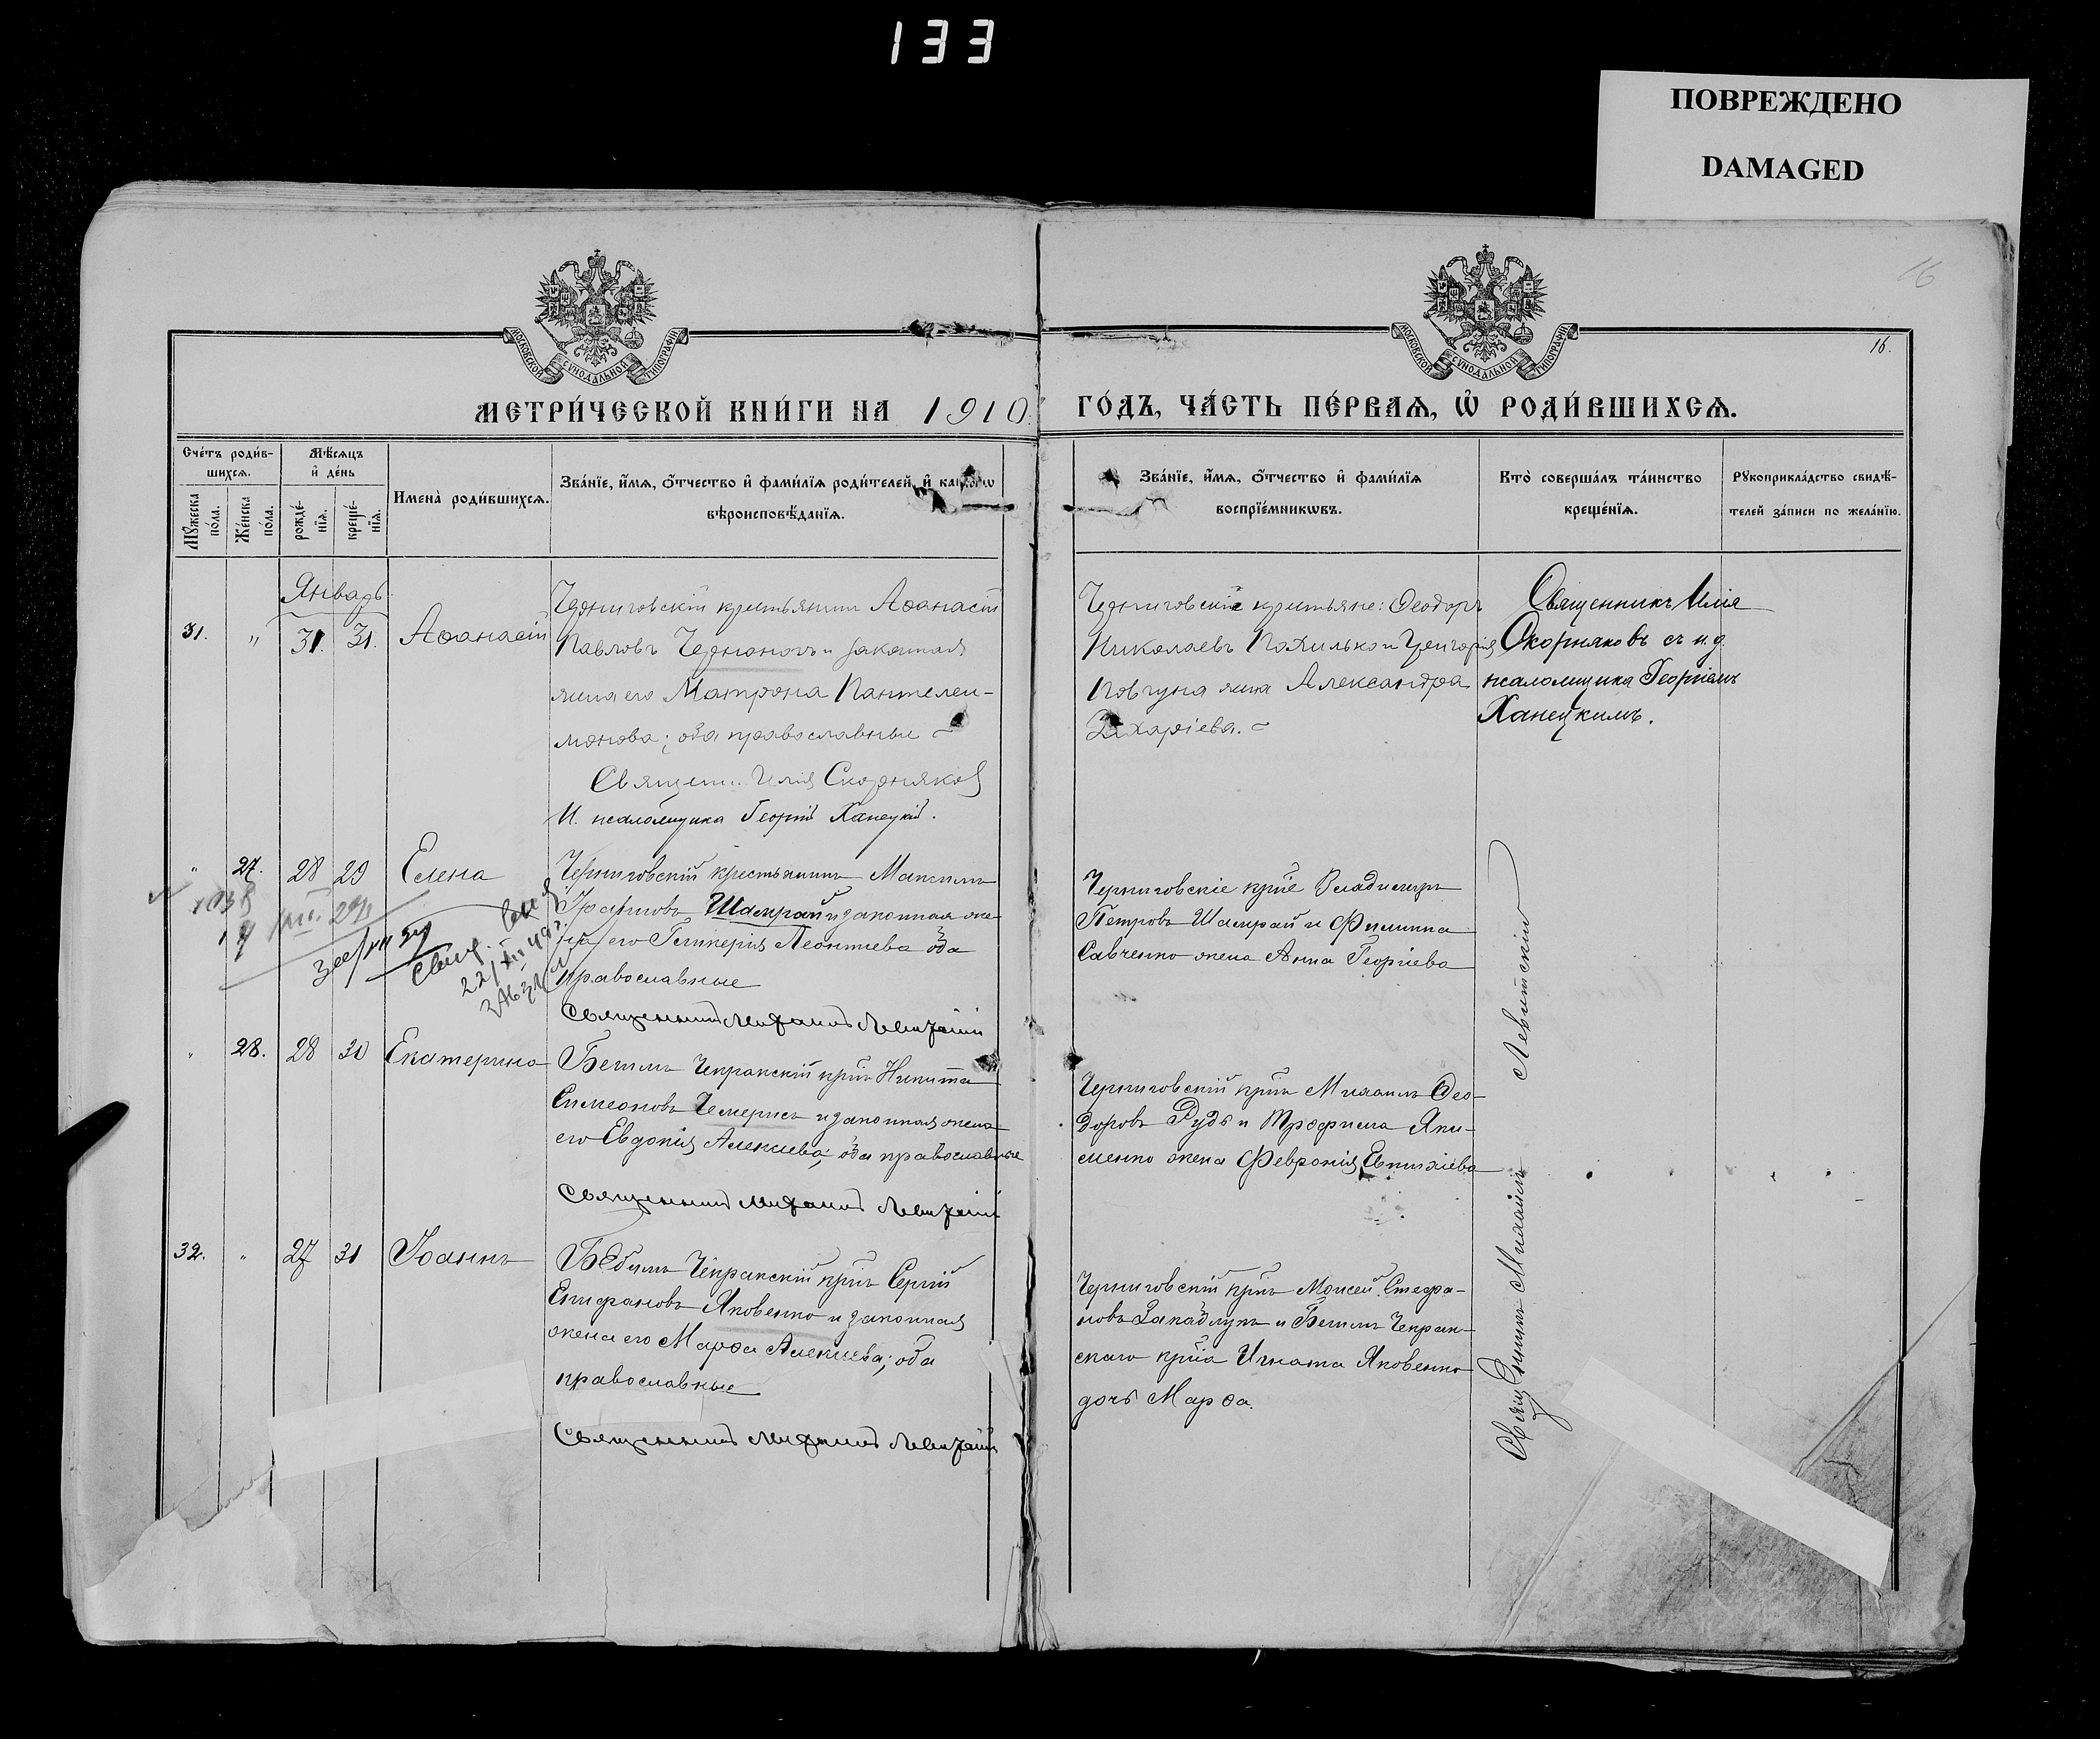 133
ПОВРЕЖДЕНО
DAMAGED
16
16.
МОСКОВСКОЙ СѴНОДАЛЬНОЙ ТИПОГРАФІИ
МОСКОВСКОЙ СѴНОДАЛЬНОЙ ТИПОГРАФІИ
МЕТРИ́ЧЕСКОЙ КНИ́ГИ НА 1910
ГО́ДЪ, ЧА́СТЬ ПЕ́РВАѦ, Ѽ РОДИ́ВШИХСѦ.
Сче́тъ роди́в-
шихсѧ.
Мꙋжеска по́ла.
Же́нска по́ла.
Мѣ́сѧцъ
и҆ де́нь
рожде́-
нїѧ.
креще́-
нїѧ.
Имена̀ роди́вшихсѧ.
Зва́нїе, и҆́мѧ, ѻ҆́тчество и҆ фами́лїѧ роди́телей, и҆
вѣроисповѣ́данїѧ.
Зва́нїе, и҆́мѧ, ѻ҆́тчество и҆ фами́лїѧ
воспрїе́мникѡвъ.
Кто̀ соверша́лъ та́инство
креще́нїѧ.
Рꙋкоприкла́дство свидѣ́-
телей за́писи по жела́нїю.
Январь
31. " 31. 31. Аѳанасій
Черниговскій крестьянинъ Аѳанасій
Павловъ и законная
жена его Матрона Пантелеи-
монова; оба православные
Священ. Илія Скорняковъ
И. псаломщика Георгій Ханецкій.
Черниговскіе крестьяне: Ѳеодоръ
Николаевъ и Григорія
жена Александра
Захаріева.
Священникъ Илія
Скорняковъ съ и.д.
псаломщика Георгіемъ
Ханецкимъ.
" 27. 28 29 Елена
Черниговскій крестьянинъ Максимъ
Шамрай и законная же-
на его Гликерія Леонтіева оба
православные
Священникъ Михаилъ Левитскій
Черниговскіе кр͠не Владимиръ
Петровъ Шамрай и Филиппа
Савченко жена Анна Георгіева
" 28. 28 30 Екатерина
Бешулъ Чекракскій кр͠нъ Никита
Симеоновъ Чемерисъ и законная жена
его Евдокія Алексіева; оба православные
Священникъ Михаилъ Левитскій
Черниговскій кр͠нъ Михаилъ Ѳео-
доровъ Рудь и Трофима Яки-
менко жена Февронія Евтихіева
32. " 27 31 Іоаннъ
Чекракскій кр͠нъ Сергій
Епифановъ Яковенко и законная
жена его Марѳа Алексіева; оба
православные
Священникъ Михаилъ Левитскій
Черниговскій кр͠нъ Моисей Стефа-
новъ и Чекрак-
скаго кр͠на Игната Яковенко
дочь Марѳа.
Священникъ Михаилъ Левитскій